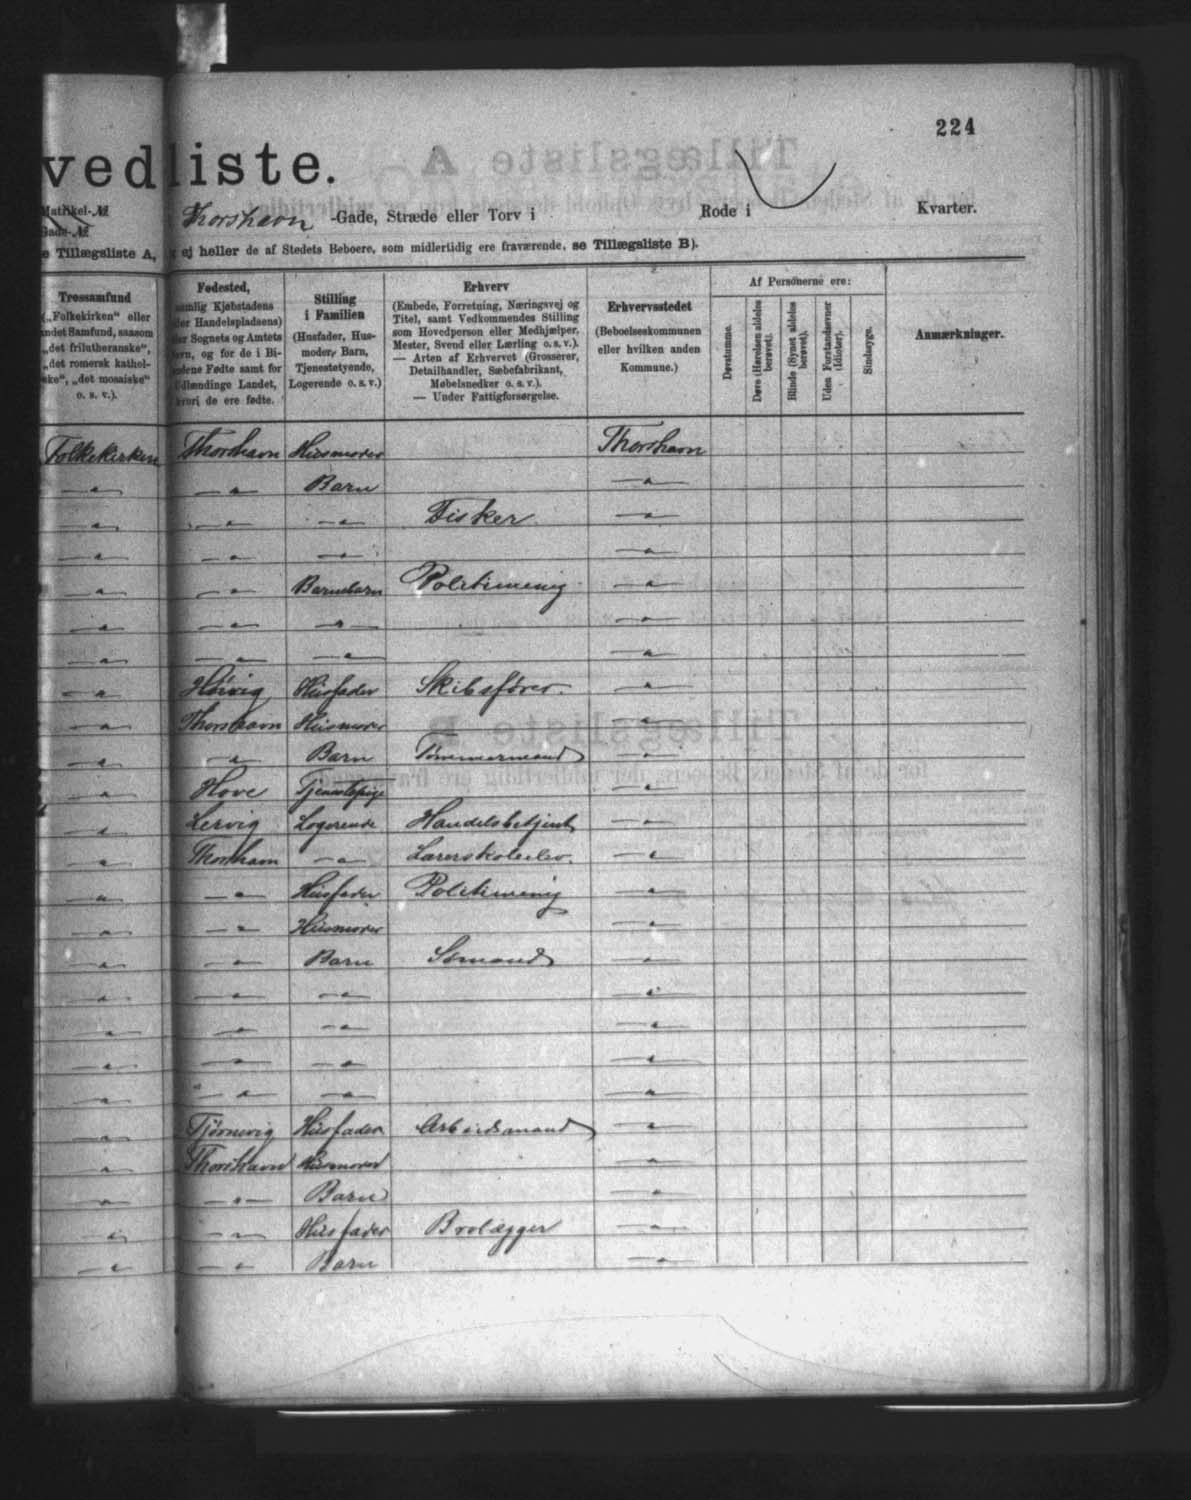 224
vedliste.
Matrikel-№
Gade-№
Thorshavn -Gade, Stræde eller Torv i Rode i Kvarter.
e Tillægsliste A, ej heller de af Stedets Beboere, som midlertidig ere fraværende, se Tillægsliste B).
Trossamfund
(„Folkekirken" eller
andet Samfund, saasom
„det frilutheranske",
„det romersk kathol-
ske", „det mosaiske"
o. s. v.).
Fødested,
nemlig Kjøbstadens
eller Handelspladsens)
eller Sognets og Amtets
Navn, og for de i Bi-
landene Fødte samt for
Udlændinge Landet,
hvori de ere fødte.
Stilling
i Familien
(Husfader, Hus-
moder, Barn,
Tjenestetyende,
Logerende o. s. v.)
Erhverv
(Embede, Forretning, Næringsvej og
Titel, samt Vedkommendes Stilling
som Hovedperson eller Medhjælper,
Mester, Svend eller Lærling o. s. v.).
— Arten af Erhvervet (Grosserer,
Detailhandler, Sæbefabrikant,
Møbelsnedker o. s. v.).
— Under Fattigforsørgelse.
Erhvervsstedet
(Beboelseskommunen
eller hvilken anden
Kommune.)
Af Personerne ere:
Døvstumme.
Døve (Hørelsen aldeles berøvet).
Blinde (Synet aldeles berøvet).
Uden Forstandsevner (Idioter).
Sindssyge.
Anmærkninger.
Folkekirken Thorshavn Husmoder Thorshavn
— " — — " — Barn — " —
— " — — " — — " — Fisker — " —
— " — — " — — " — — " —
— " — — " — Barnebarn Politimenig — " —
— " — — " — — " — — " —
— " — — " — — " — — " —
— " — Höivig Husfader Skibsfører — " —
— " — Thorshavn Husmoder — " —
— " — — " — Barn Tømmermand — " —
— " — Hove Tjenestepige — " —
— " — Lervig Logerende Handelsbetjent — " —
— " — Thorshavn — " — Lærerskoleelev. — " —
— " — — " — Husfader Politimenig — " —
— " — — " — Husmoder — " —
— " — — " — Barn Sømand — " —
— " — — " — — " — — " —
— " — — " — — " — — " —
— " — — " — — " — — " —
— " — — " — — " — — " —
Tjörnevig Husfader Arbeidsmand — " —
— " — Thorshavn Husmoder — " —
— " — — " — Barn — " —
— " — — " — Husfader Brolægger — " —
— " — — " — Barn — " —